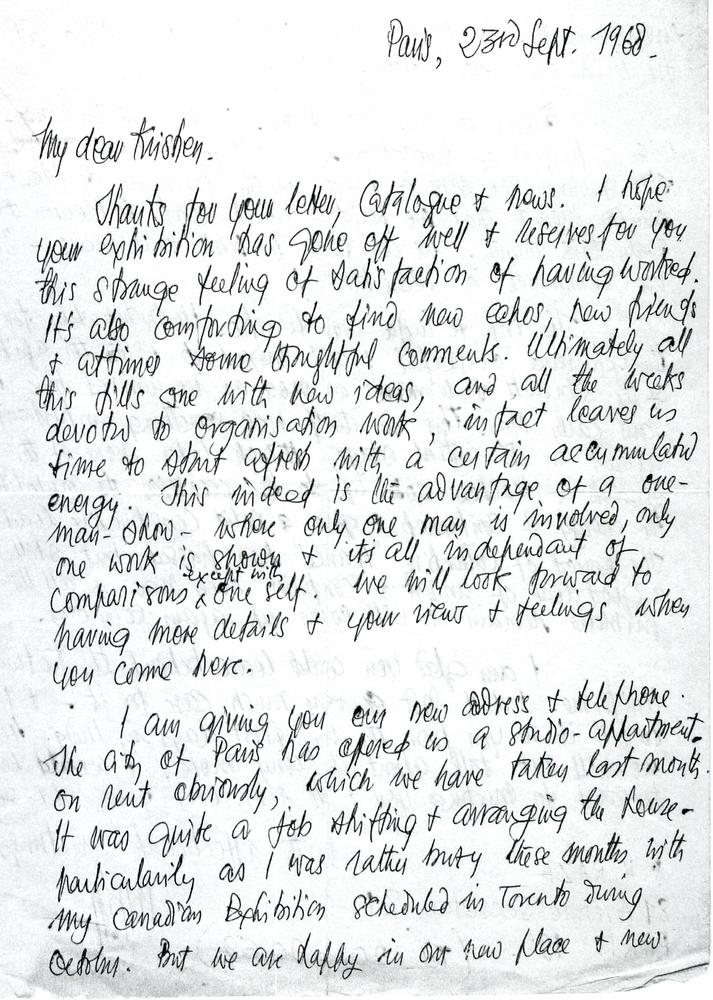 Paris, 23rd Sept. 1968.
My dear Krishen.
Thanks for your letter, Catalogue & news. I hope
your exhibition has gone off well & reserves for you
this strange feeling of satisfaction of having worked.
It's also comforting to find new echos, new friends
& attimes some thoughtful comments. Ultimately all
this fills one with new ideas, and all the weeks
devoted to organisation work, infact leaves us
time to start afresh with a certain accumulated
energy. This indeed is the advantage of a one-
man-show - where only one man is involved, only
one work is shown & its all independant of
comparisons except with one self. We will look forward to
having more details & your views & feelings when
you come here.
I am giving you our new adress & telephone.
The city of Paris has offered us a studio-appartment.
on rent obviously, which we have taken last month.
It was quite a job shifting & arranging the house-
particularily as I was rather busy these months with
my Canadian Exhibition scheduled in Toronto during
October. But we are happy in our new place & new